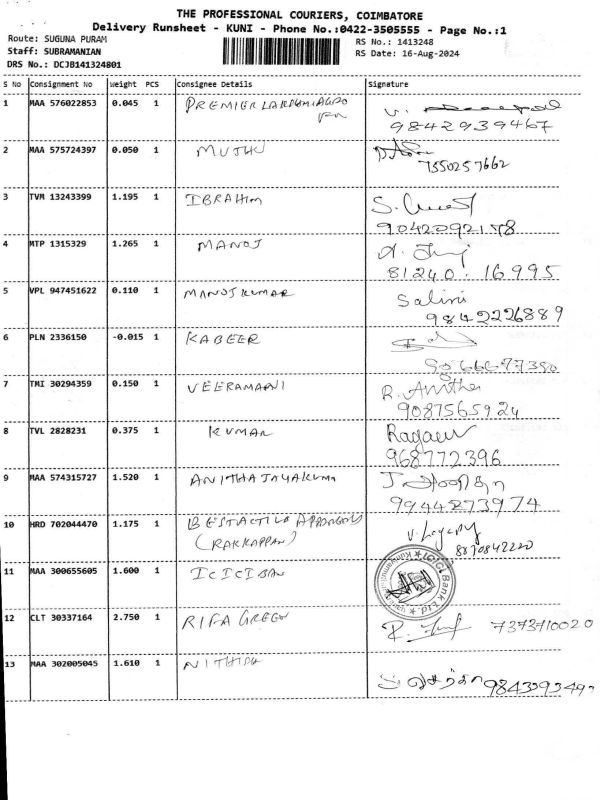 THE PROFESSIONAL COURIERS, COIMBATORE
Delivery Runsheet - KUNI - Phone No.:0422-3505555 - Page No.:1
Route: SUGUNA PURAM
RS No.: 1413248
Staff: SUBRAMANIAN
RS Date: 16-Aug-2024
DRS No.: DCJB141324801
S No Consignment No Weight PCS Consignee Details Signature
1 MAA 576022853 0.045 1 PREMIER
9842939467
2 MAA 575724397 0.050 1 MUTHU
7550257662
3 TVM 13243399 1.195 1 IBRAHIM S.
9042092158
4 MTP 1315329 1.265 1 MANOJ
81240 16995
5 VPL 947451622 0.110 1 MANOJ KUMAR Salini
9842226889
6 PLN 2336150 -0.015 1 KABEER
7 TMI 30294359 0.150 1 VEERAMANI R. Anitha
9087565924
8 TVL 2828231 0.375 1 KUMAR
968772396
9 MAA 574315727 1.520 1 ANITHA JAYAKUMA J
9944273974
10 HRD 702044470 1.175 1
(RAKKAPPAN)
8870842220
11 MAA 300655605 1.600 1 ICICI BAN ICICI Bank Ltd
12 CLT 30337164 2.750 1 RIFA GREEN R. 7373710020
13 MAA 302005045 1.610 1 NITHIYA